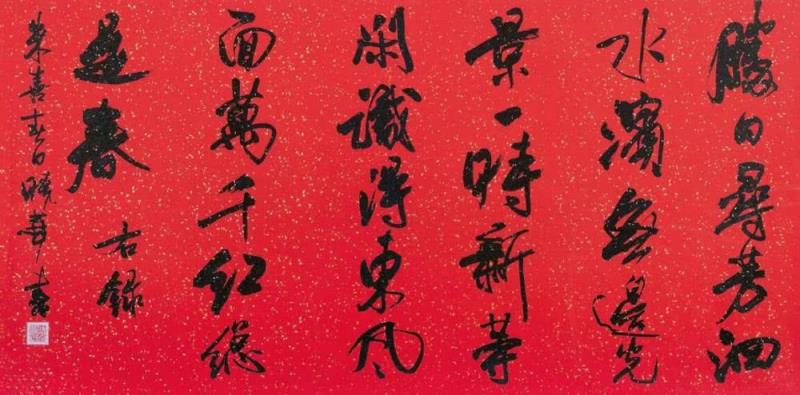 勝日尋芳泗
水濱無邊光
景一時新等
閑識得東風
面萬千紅總
是春 右錄
朱喜春日 勝華書